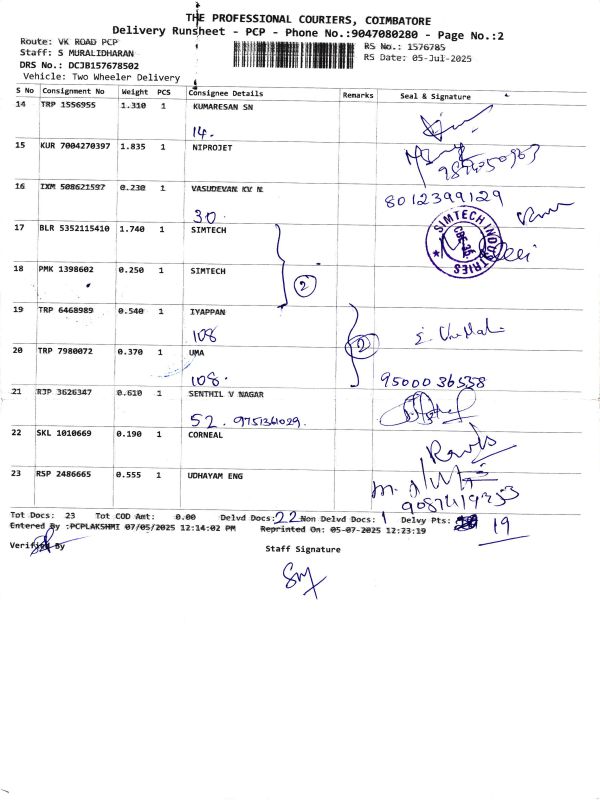 THE PROFESSIONAL COURIERS, COIMBATORE
Delivery Runsheet - PCP - Phone No.:9047080280 - Page No.:2
Route: VK ROAD PCP
Staff: S MURALIDHARAN
DRS No.: DCJB157678502
Vehicle: Two Wheeler Delivery
RS No.: 1576785
RS Date: 05-Jul-2025
S No Consignment No Weight PCS Consignee Details Remarks Seal & Signature
14 TRP 1556955 1.310 1 KUMARESAN SN
14.
15 KUR 7004270397 1.835 1 NIPROJET
16 IXM 508621597 0.230 1 VASUDEVAN KV N 8012399129
30.
17 BLR 5352115410 1.740 1 SIMTECH
SIMTECH INDUSTRIES
18 PMK 1398602 0.250 1 SIMTECH
2
19 TRP 6468989 0.540 1 IYAPPAN
108
2
20 TRP 7980072 0.370 1 UMA
108. 9500036558
21 RJP 3626347 0.610 1 SENTHIL V NAGAR
52. 9751361029.
22 SKL 1010669 0.190 1 CORNEAL
23 RSP 2486665 0.555 1 UDHAYAM ENG
Tot Docs: 23 Tot COD Amt: 0.00 Delvd Docs: 22 Non Delvd Docs: 1 Delvy Pts: 19
Entered By :PCPLAKSHMI 07/05/2025 12:14:02 PM Reprinted On: 05-07-2025 12:23:19
Verified By
Staff Signature